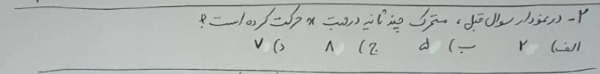 ۲- در نمودار سوال قبل، متحرک چند ثانیه در جهت x حرکت کرده است؟
الف) ۲ ب) ۵ ج) ۸ د) ۷